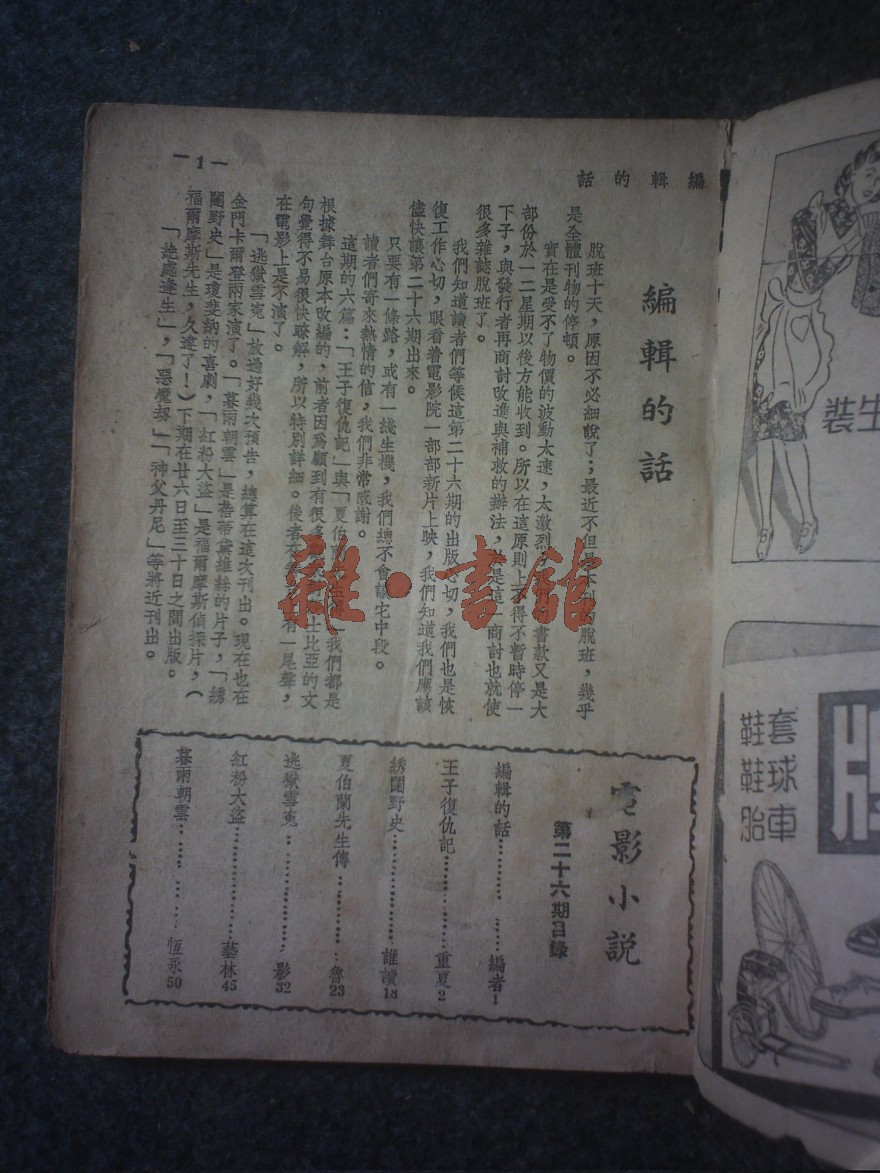 編輯的話
— 1 —
編輯的話
脫班十天，原因不必細說了；最近不但是本刊的脫班，幾乎
是全體刊物的停頓。
實在是受不了物價的波動太速，太激烈，書款又是大
部份於一二星期以後方能收到。所以在這原則上不得不暫時停一
下子，與發行者再商討改進與補救的辦法，就是這一商討也就使
很多雜誌脫班了。
我們知道讀者們等候這第二十六期的出版心切，我們也是恢
復工作心切，眼看着電影院一部部新片上映，我們知道我們應該
儘快讓第二十六期出來。
只要有一條路，或有一綫生機，我們總不會讓它中段。
讀者們寄來熱情的信，我們非常感謝。
這期的六篇：「王子復仇記」與「夏伯蘭先生傳」我們都是
根據舞台原本改編的，前者因爲顧到有很多士比亞的文
句覺得不易很快瞭解，所以特別詳細。後者不有一尾聲，
在電影上是不演了。
「逃獄雪寃」放過好幾次預告，總算在這次刊出。現在也在
金門卡爾登兩家演了。「暮雨朝雲」是蓓蒂黛維絲的片子，「綉
闥野史」是瓊斐納的喜劇，「紅粉大盜」是福爾摩斯偵探片，（
福爾摩斯先生，久違了！）下期在廿六日至三十日之間出版。
「絕處逢生」，「惡魔刼」「神父丹尼」等將近刊出。
電影小説
第二十六期目錄
編輯的話…………編者1
王子復仇記…………重夏2
綉闥野史…………誰讀18
夏伯蘭先生傳…………魯23
逃獄雪寃…………影32
紅粉大盜…………藝林45
暮雨朝雲…………恆永50
雜·書館
生裝
牌
套球車
鞋鞋胎